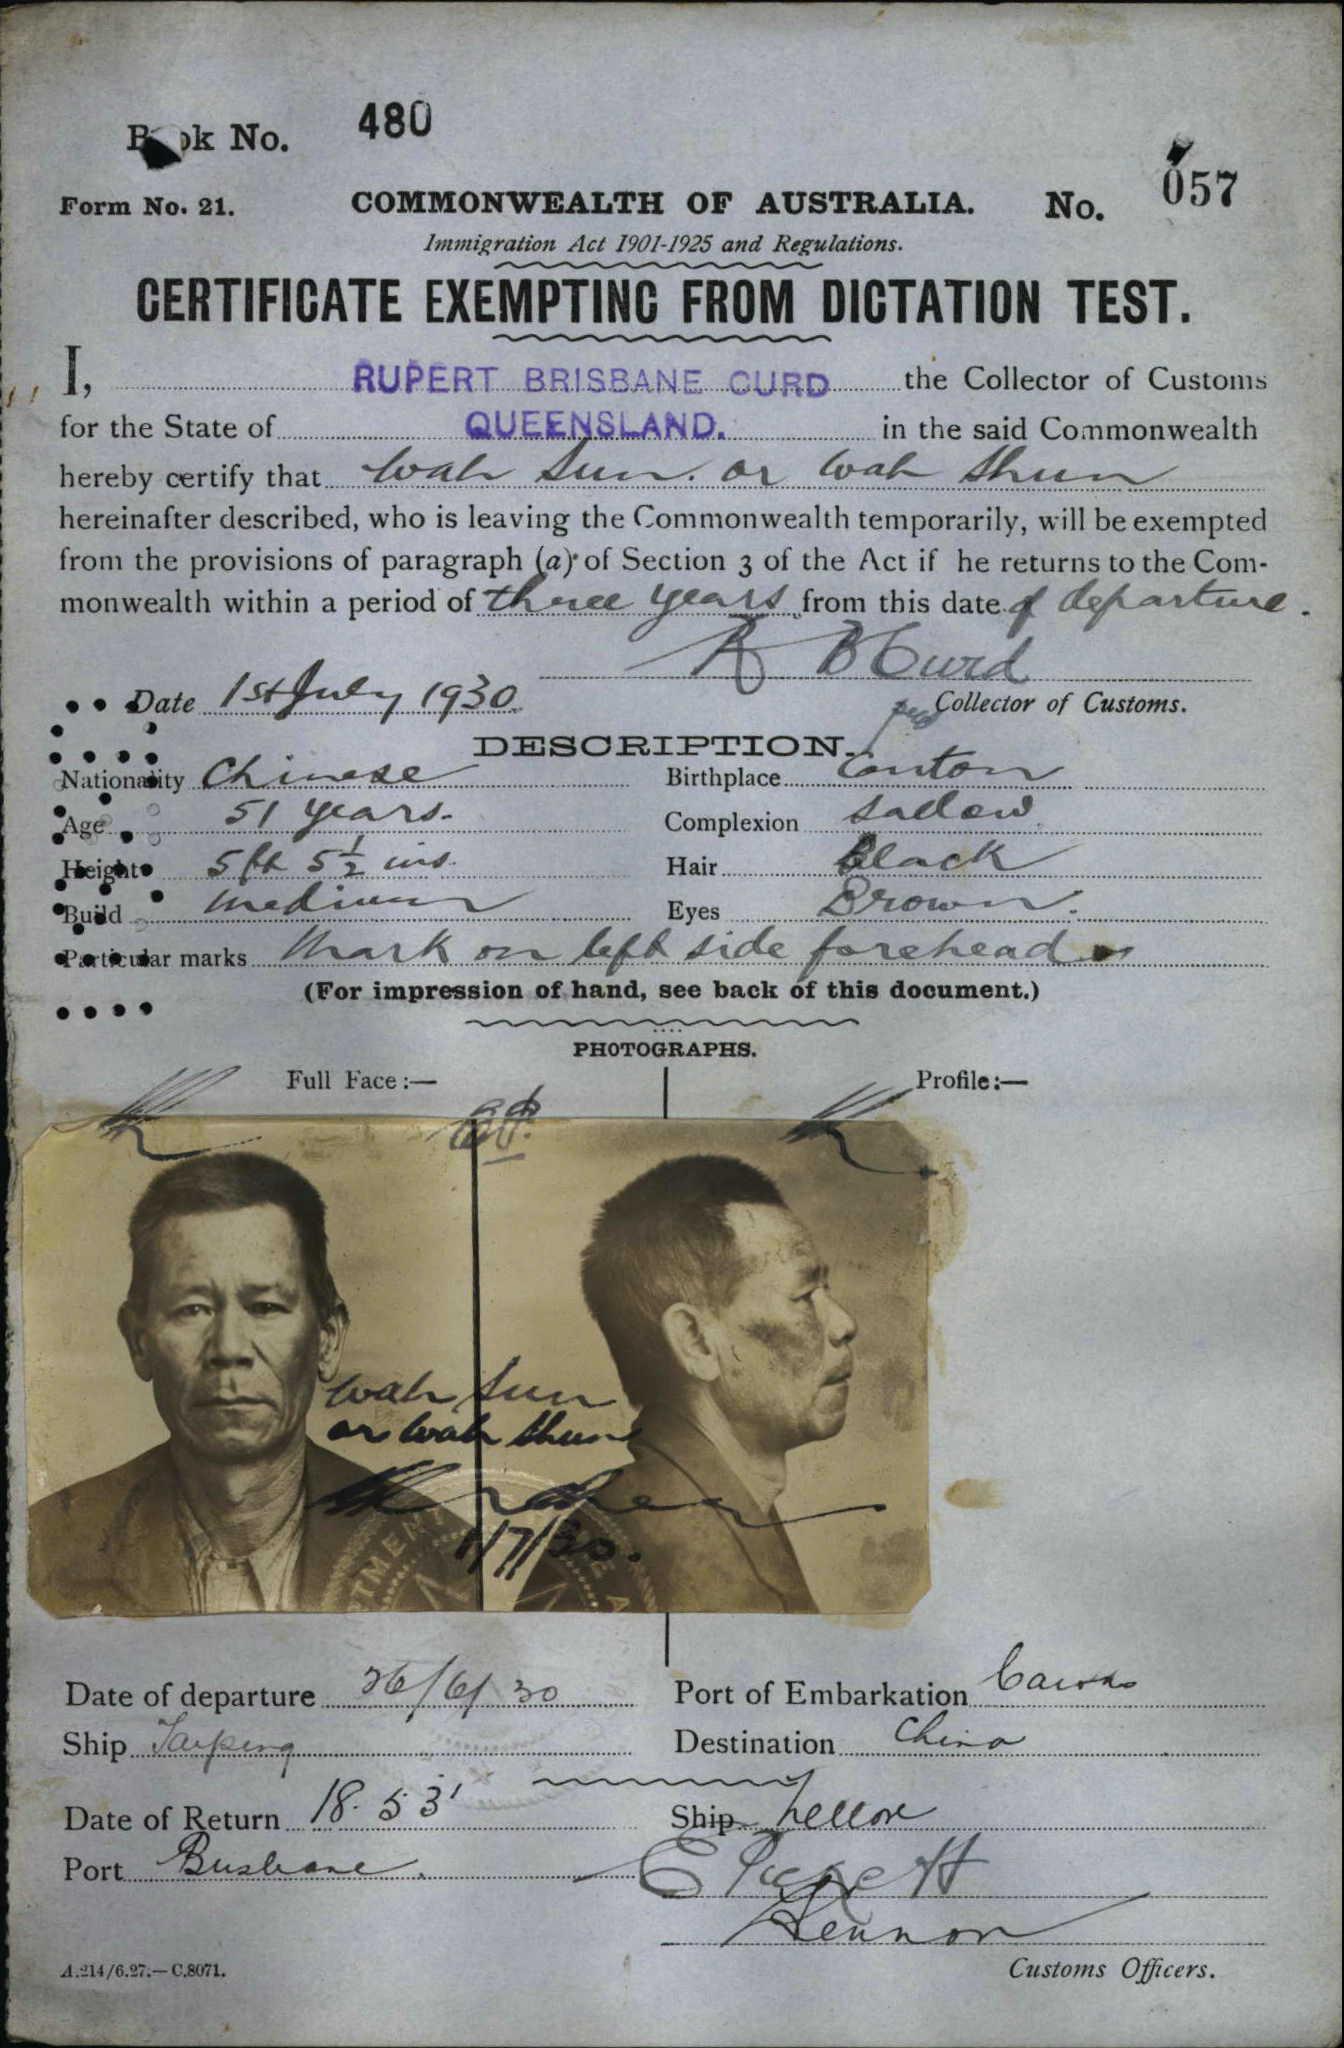 Book No. 480
Form No. 21. COMMONWEALTH OF AUSTRALIA. No. 057
Immigration Act 1901-1925 and Regulations.
CERTIFICATE EXEMPTING FROM DICTATION TEST.
I, RUPERT BRISBANE CURD the Collector of Customs
for the State of QUEENSLAND. in the said Commonwealth
hereby certify that Wah Sun. or Wah Shun
hereinafter described, who is leaving the Commonwealth temporarily, will be exempted
from the provisions of paragraph (a) of Section 3 of the Act if he returns to the Com-
monwealth within a period of three years from this date of departure.
R B Curd
Date 1st July 1930. Collector of Customs.
DESCRIPTION.
Nationality Chinese Birthplace Canton
Age 51 years. Complexion Sallow
Height 5ft 5½ ins. Hair Black
Build medium Eyes Brown.
Particular marks Mark on left side forehead
(For impression of hand, see back of this document.)
PHOTOGRAPHS.
Full Face:— Profile:—
Wah Sun
or Wah Shun
1/7/30.
Date of departure 26/6/30 Port of Embarkation Cairns
Ship Taiping Destination China
Date of Return 18.5.31 Ship Nellore
Port Brisbane.
Lennon
A.214/6.27.—C.8071. Customs Officers.